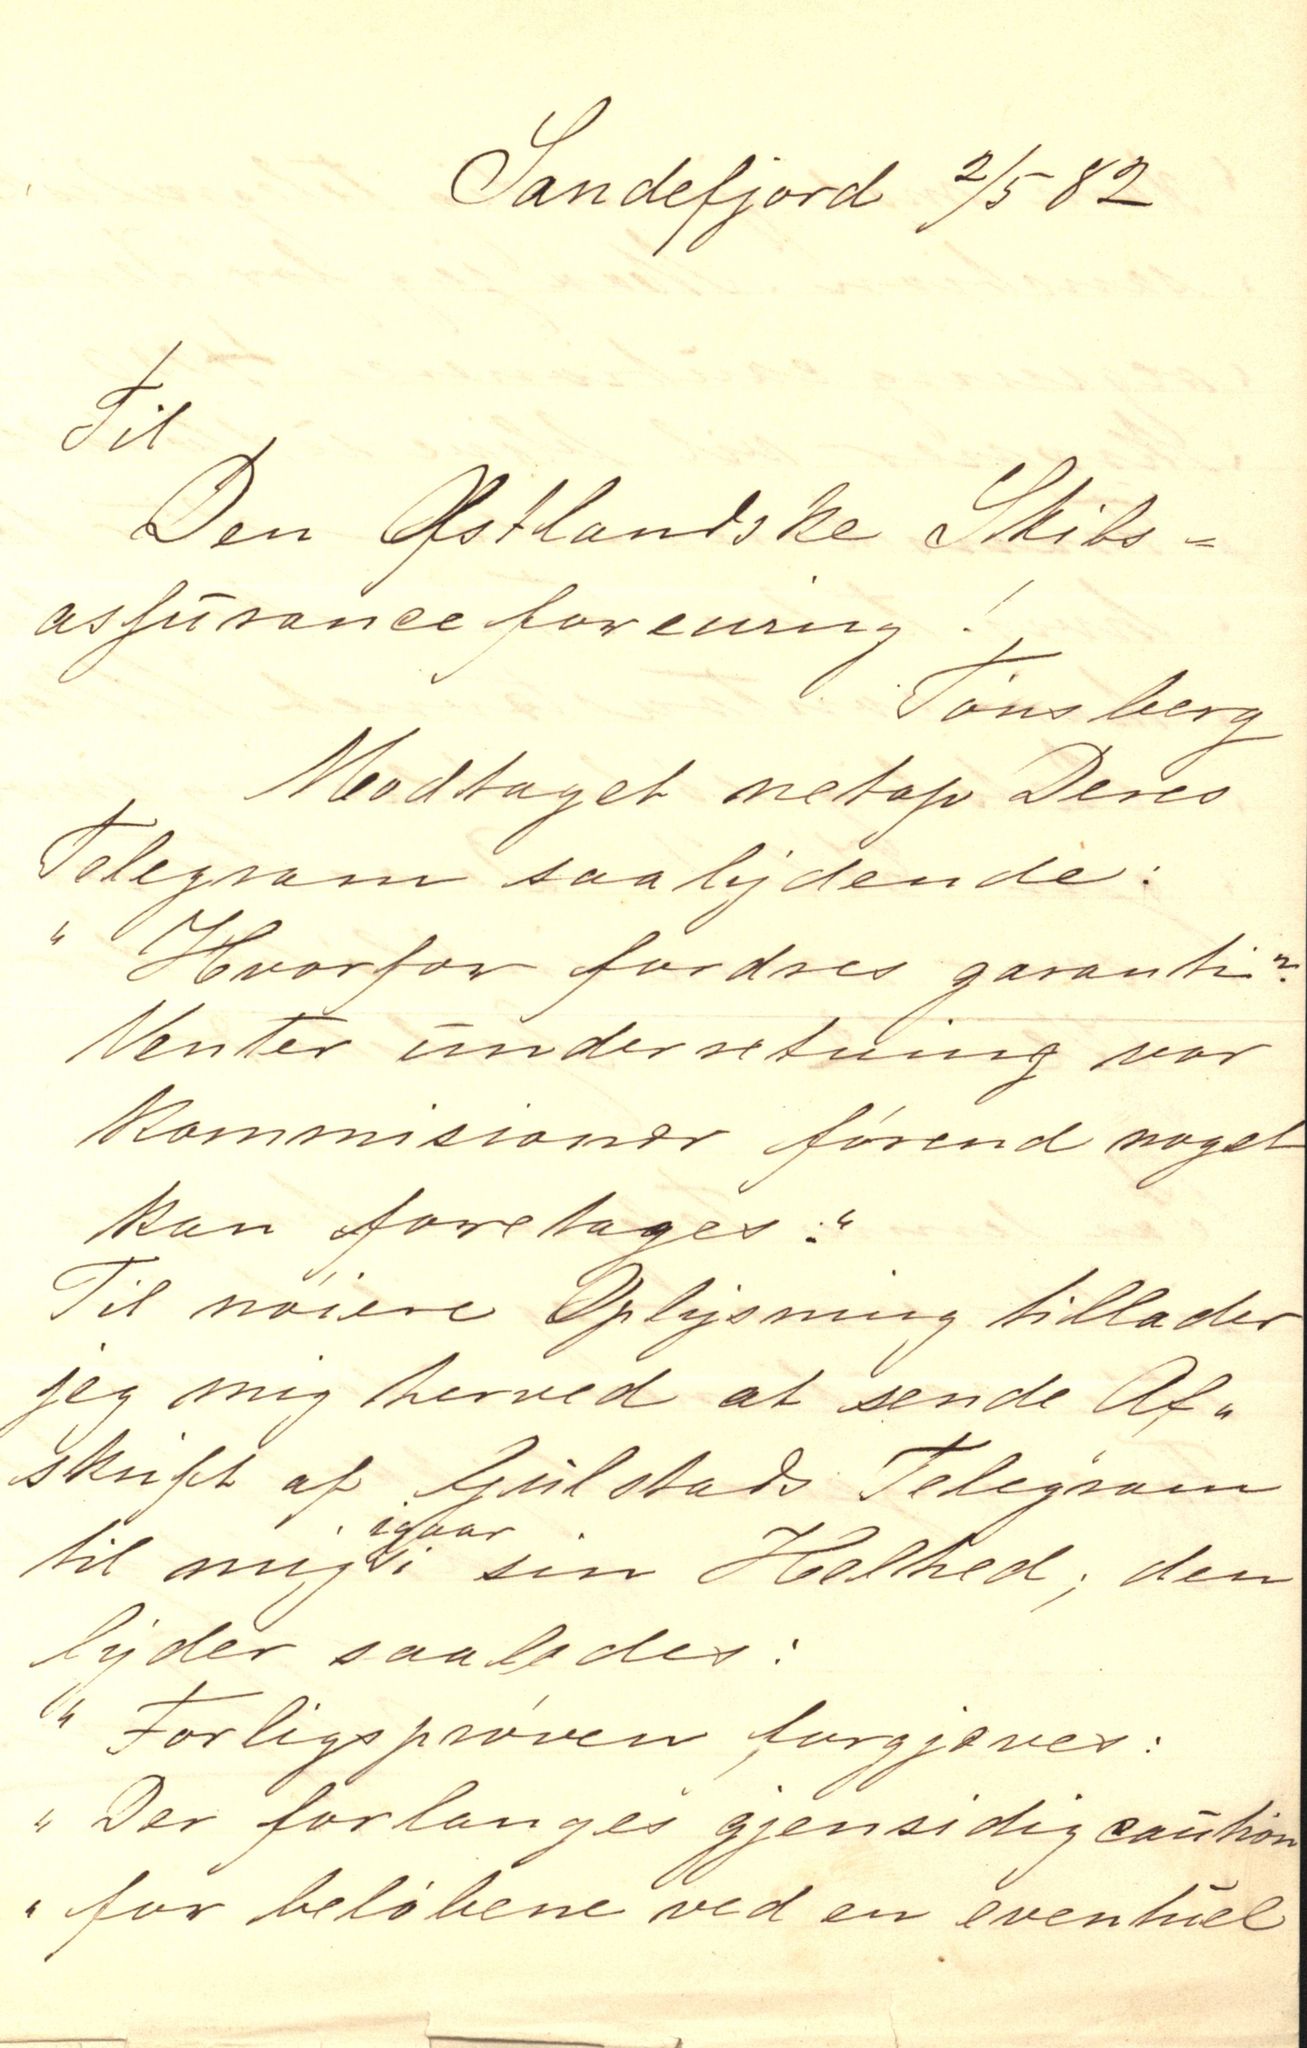 Sandefjord 2/5 82
Til
Den Østlandske Skibs-
assuranceforening!
Tønsberg
Modtaget netop Deres
Telegram saalydende:
" Hvorfor fordres garanti"?
Venter underretning vor
kommisionær førend noget
kan foretages:"
Til nøiere Oplysning tillader
jeg mig herved at sende Af-
skrift af Gulstads Telegram
til mig igaar i sin Helhed; den
lyder saaledes:
" Forligsprøven forgjæves:
" Der forlanges gjensidig caution
" for beløbene ved en eventuel